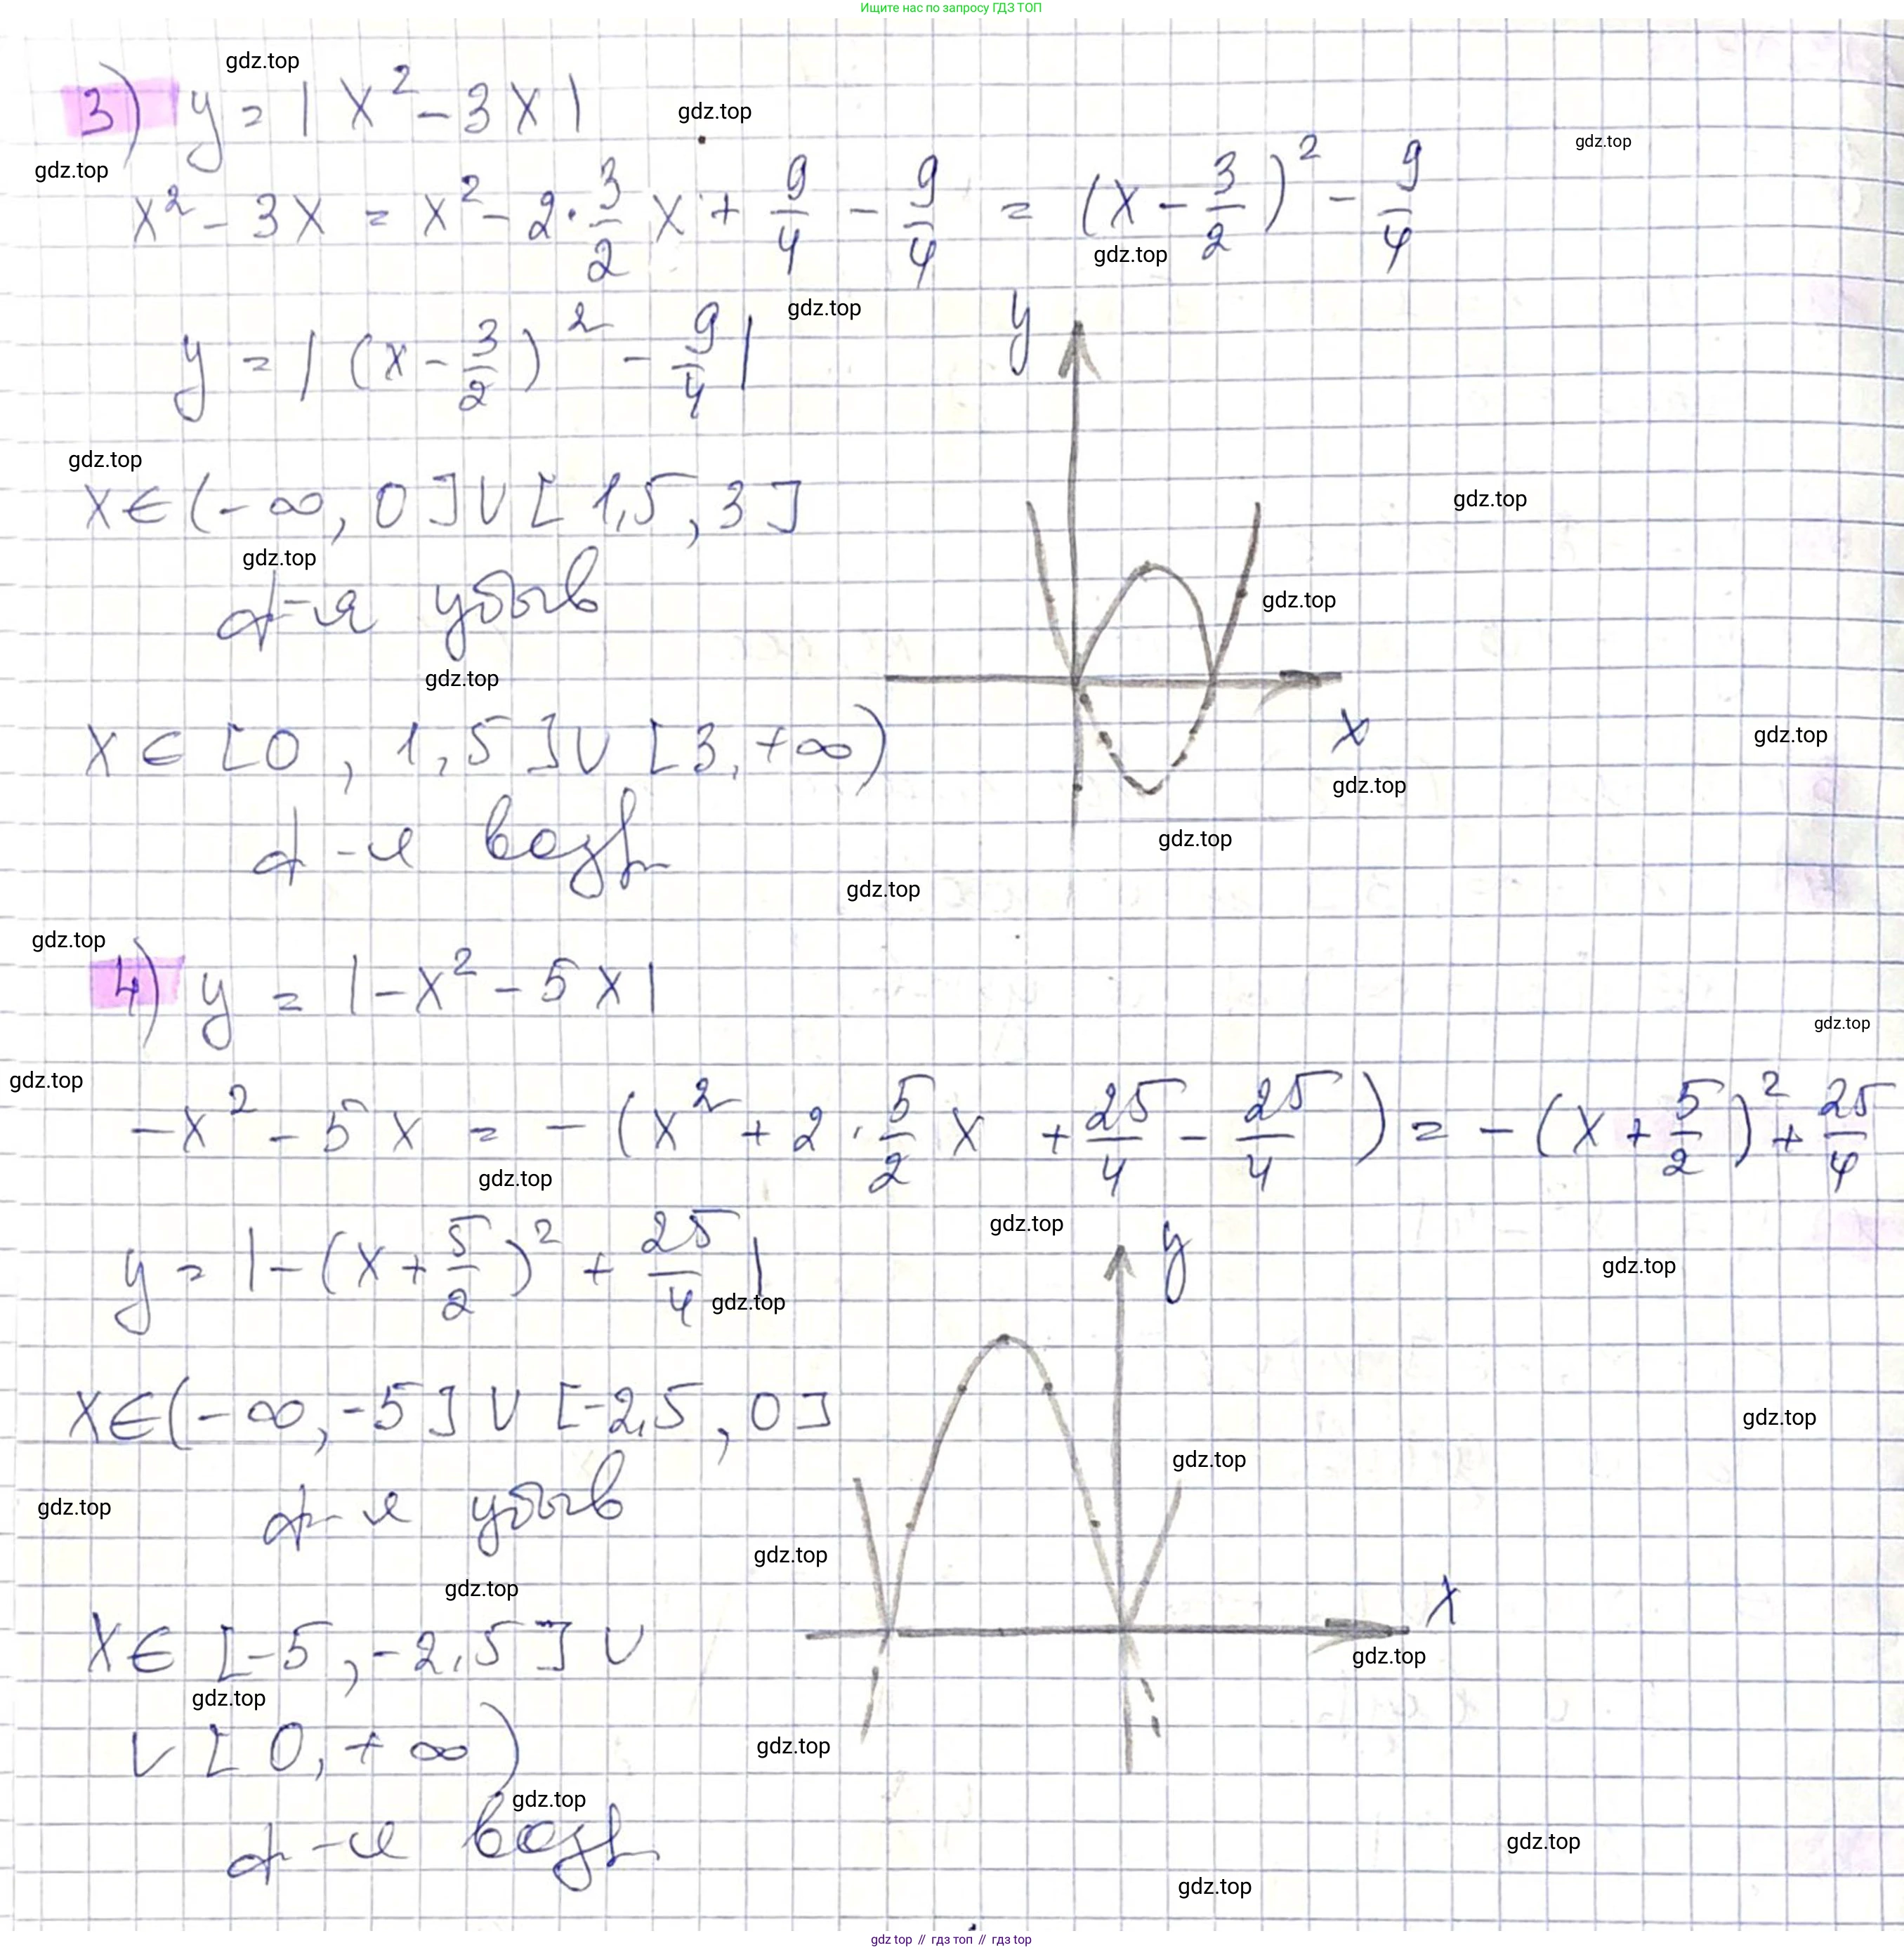 Ищите нас по запросу ГДЗ ТОП
gdz.top
3) y = |x² - 3x|
gdz.top
gdz.top
gdz.top
x² - 3x = x² - 2·3/2 x + 9/4 - 9/4 = (x - 3/2)² - 9/4
gdz.top
gdz.top
y
y = |(x - 3/2)² - 9/4|
gdz.top
x ∈ (-∞, 0] ∪ [1,5, 3]
gdz.top
gdz.top
ф-я убыв
gdz.top
gdz.top
x ∈ [0, 1,5] ∪ [3, +∞)
x
gdz.top
gdz.top
gdz.top
ф-я возр
gdz.top
gdz.top
4) y = |-x² - 5x|
gdz.top
gdz.top
-x² - 5x = -(x² + 2·5/2 x + 25/4 - 25/4) = -(x + 5/2)² + 25/4
gdz.top
gdz.top
y
y = |-(x + 5/2)² + 25/4|
gdz.top
gdz.top
x ∈ (-∞, -5] ∪ [-2,5, 0]
gdz.top
gdz.top
gdz.top
ф-я убыв
gdz.top
gdz.top
x
x ∈ [-5, -2,5] ∪
gdz.top
gdz.top
∪ [0, +∞)
gdz.top
gdz.top
ф-я возр
gdz.top
gdz.top
gdz top // гдз топ // gdz top